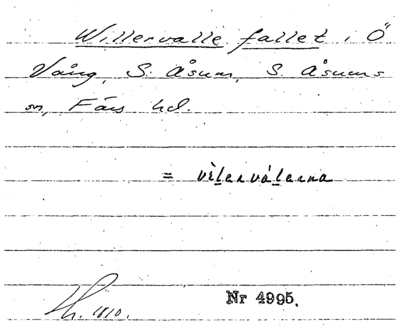 Willervalle fallet i Ö
Vång, S. Åsum, S. Åsums
sn, Färs hd.
= vìlerválerna
1810.
Nr 4995.